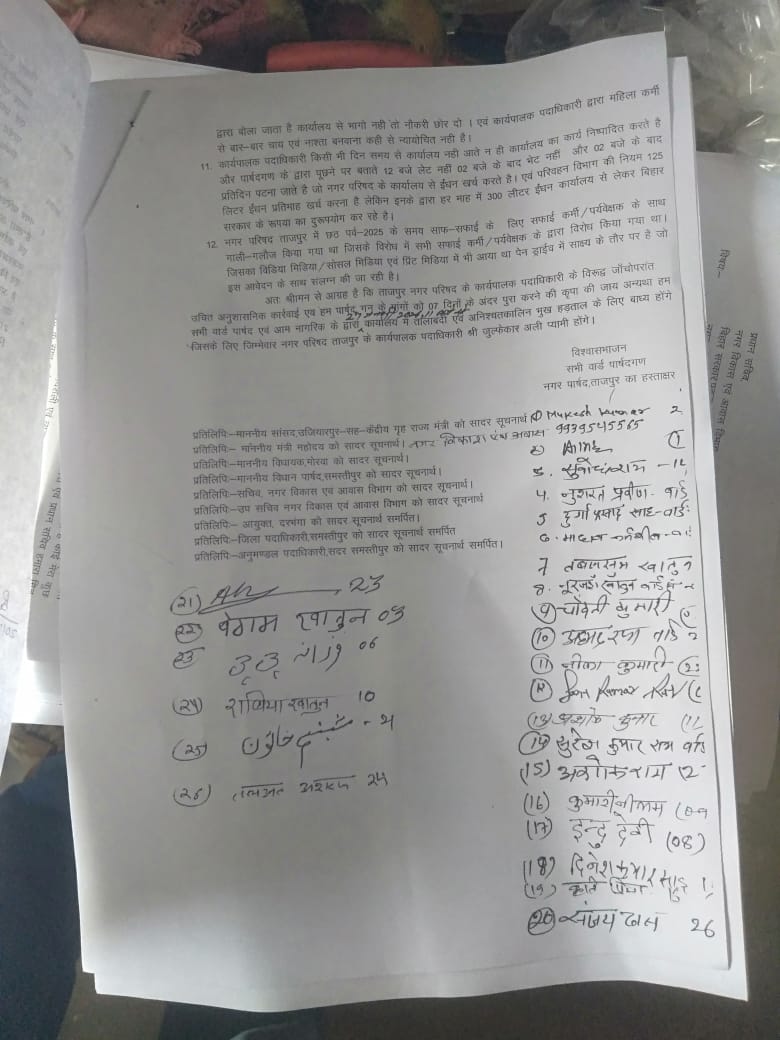 द्वारा बोला जाता है कार्यालय से भागो नही तो नौकरी छोर दो । एवं कार्यपालक पदाधिकारी द्वारा महिला कर्मी
से बार-बार चाय एवं नाश्ता बनवाना कही से न्यायोचित नही है।
11. कार्यपालक पदाधिकारी किसी भी दिन समय से कार्यालय नही आते न ही कार्यालय का कार्य निष्पादित करते है
और पार्षदगण के द्वारा पूछने पर बताते 12 बजे लेट नहीं 02 बजे के बाद भेट नहीं और 02 बजे के बाद
प्रतिदिन पटना जाते है जो नगर परिषद के कार्यालय से ईंधन खर्च करते है। एवं परिवहन विभाग की नियम 125
लिटर ईंधन प्रतिमाह खर्च करना है लेकिन इनके द्वारा हर माह में 300 लीटर ईंधन कार्यालय से लेकर बिहार
सरकार के रूपया का दुरूपयोग कर रहे है।
12. नगर परिषद ताजपुर में छठ पर्व-2025 के समय साफ-सफाई के लिए सफाई कर्मी/पर्यवेक्षक के साथ
गाली-गलौज किया गया था जिसके विरोध में सभी सफाई कर्मी/पर्यवेक्षक के द्वारा विरोध किया गया था।
जिसका विडिया मिडिया/सोसल मिडिया एवं प्रिंट मिडिया में भी आया था पेन ड्राईव में साक्ष्य के तौर पर है जो
इस आवेदन के साथ संलग्न की जा रही है।
अतः श्रीमान से आग्रह है कि ताजपुर नगर परिषद के कार्यपालक पदाधिकारी के विरूद्ध जाँचोपरांत
उचित अनुशासनिक कार्रवाई एवं हम पार्षद गन के मांगों को 07 दिनों के अंदर पुरा करने की कृपा की जाय अन्यथा हम
सभी वार्ड पार्षद एवं आम नागरिक के द्वारा कार्यालय में तालाबंदी एवं अनिश्चतकालिन भुख हड़ताल के लिए बाध्य होंगे
जिसके लिए जिम्मेवार नगर परिषद ताजपुर के कार्यपालक पदाधिकारी श्री जुल्फेकार अली प्यामी होंगे।
विश्वासभाजन
सभी वार्ड पार्षदगण
नगर पार्षद,ताजपुर का हस्ताक्षर
प्रतिलिपिः-माननीय सांसद,उजियारपुर-सह-केंद्रीय गृह राज्य मंत्री को सादर सूचनार्थ
प्रतिलिपिः- माननीय मंत्री महोदय को सादर सूचनार्थ। नगर विकास एवं आवास
प्रतिलिपिः-माननीय विधायक,मोरवा को सादर सूचनार्थ।
प्रतिलिपिः-माननीय विधान पार्षद,समस्तीपुर को सादर सूचनार्थ।
प्रतिलिपिः-सचिव, नगर विकास एवं आवास विभाग को सादर सूचनार्थ।
प्रतिलिपिः-उप सचिव नगर विकास एवं आवास विभाग को सादर सूचनार्थ
प्रतिलिपिः- आयुक्त, दरभंगा को सादर सूचनार्थ समर्पित।
प्रतिलिपिः-जिला पदाधिकारी,समस्तीपुर को सादर सूचनार्थ समर्पित
प्रतिलिपिः-अनुमण्डल पदाधिकारी,सदर समस्तीपुर को सादर सूचनार्थ समर्पित।
① Mukesh Kumar 2
9939545565
४. नुशरत प्रवीण- वार्ड
5 दुर्गा प्रसाद साह-वार्ड
7 तबस्सुम खातुन
8. नूरजहाँ खातुन वार्ड
(9) चाँदनी कुमारी
(10)
(11) नीला कुमारी
(12) Kumar
(13) अशोक कुमार
(14) सुरेश कुमार राम वार्ड
(15) अशोक राय
(16) कुमारी नीलम
(17) इन्दु देवी (08)
(18) दिनेश कुमार साह
(19)
(20) संजय दास 26
(21) 23
(22) बेगम खातुन 03
23 06
(24) राबिया खातुन 10
(25) شبنم خاتون
(26) तलअत अशरफ 24